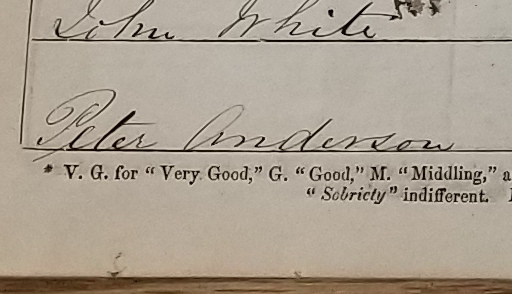 John White
Peter Anderson
* V. G. for "Very Good," G. "Good," M. "Middling," a
"Sobriety" indifferent.